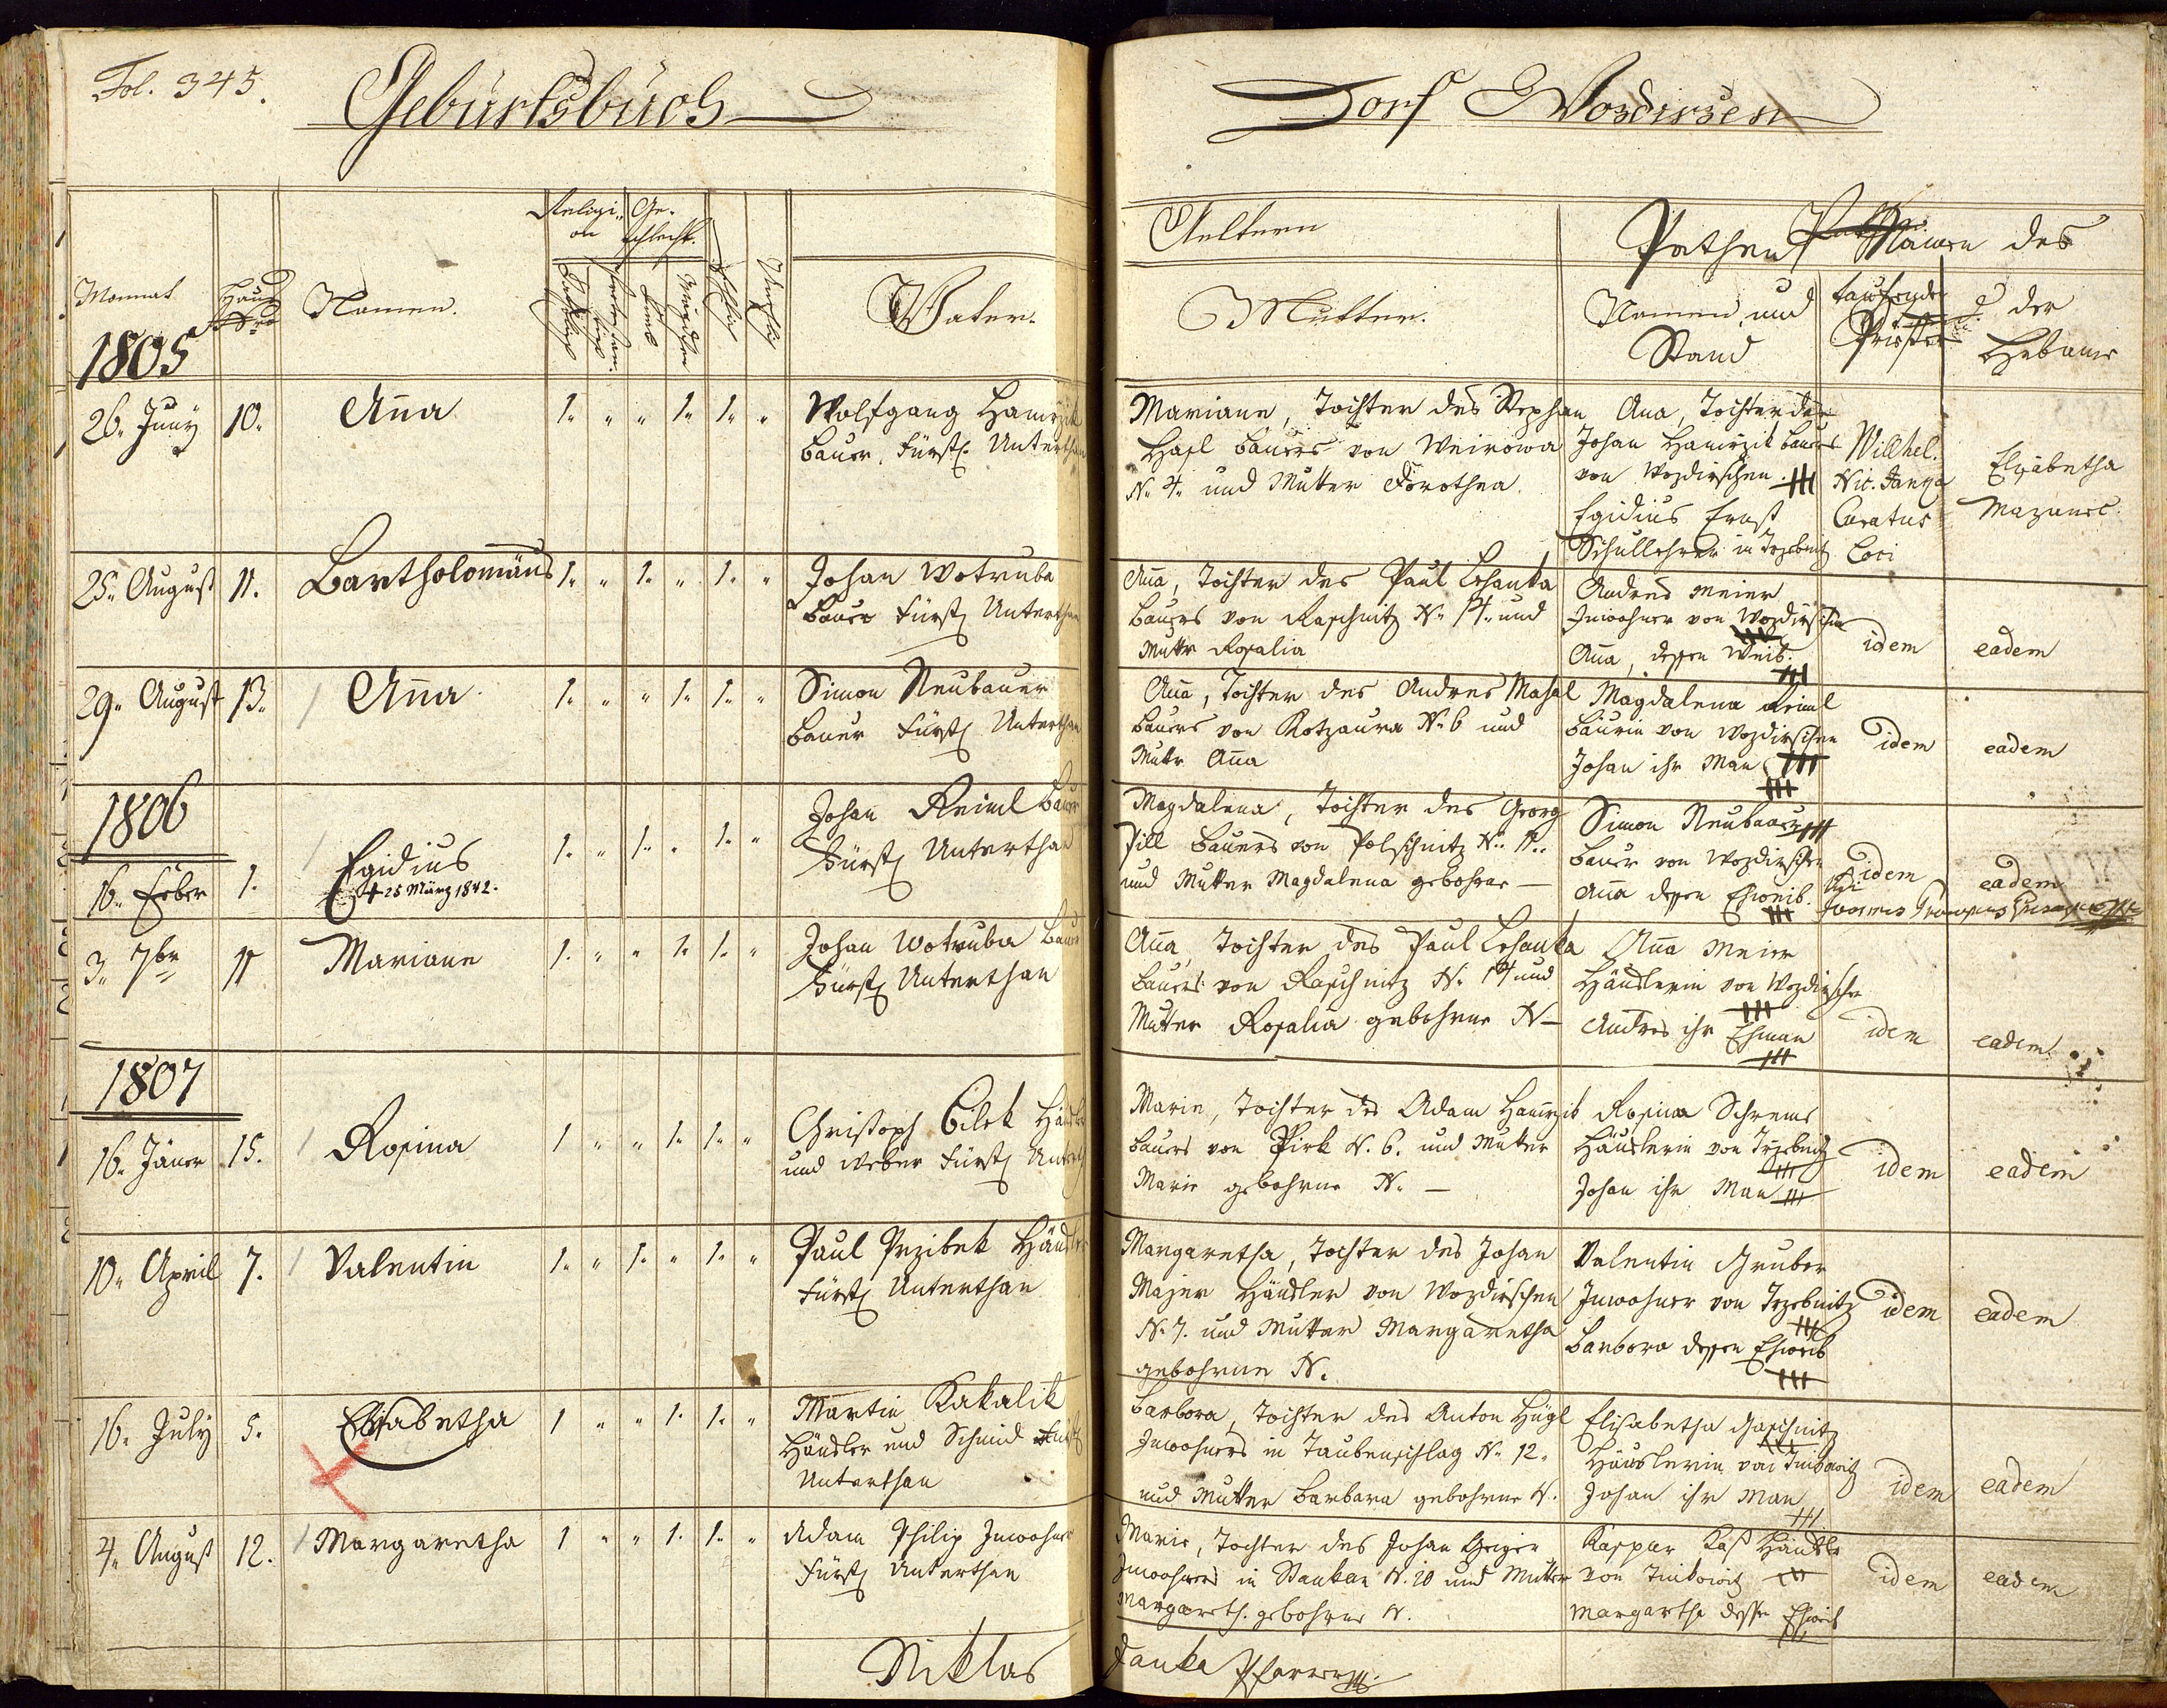 Fol. 345.
Geburtsbuch
Dorf Wosdirzen
Monnat
Hauß Nro
Namen.
Religion
Geschlecht.
Vater.
Aeltern
Mutter.
Pathen
Namen und Stand
Namen des
taufenden Priester
u. der Hebame
1805
26. Juny 10. Anna 1. " " 1. 1. "
Wolfgang
Bauer, Fürstl. Unterthan
Mariane, Tochter des Stephan
Hasl Bauers von Weirowa
N. 4. und Mutter Dorothea.
Ana, Tochter des
Johan Hamrzik Bauers
von Wozdirschen
Egidius Ernst
Schullehrer in Trzebnitz
Willhel.
Nic. Janka
Curatus
Loci
Elisabetha
Mazanec.
25. August 11. Bartholomäus 1. " 1. " 1. "
Johan Wotruba
Bauer Fürstl Unterthan
Anna, Tochter des Paul Lehanka
Bauers von Raschnitz N. 14. und
Mutter Rosalia
Andres Meier
Inwohner von Wozdirschen
Anna, dessen Weib.
idem
eadem
29. August 13. Anna 1. " " 1. 1. "
Simon Neubauer
Bauer Fürstl Unterthan
Anna, Tochter des Andres Masal
Bauers von Kotzaura N. 6 und
Mutter Anna
Magdalena Reiml
Bäurin von Wozdirschen
Johan ihr Man
idem
eadem
1806
16. Feber 1. Egidius 1. " 1. " 1. "
+ 25 März 1842.
Johan Reiml Bauer
Fürstl Unterthan
Magdalena, Tochter des Georg
Pill Bauers von Polschnitz N. 11.
und Mutter Magdalena gebohrne —
Simon Neubauer
Bauer von Wozdirschen
Anna dessen Eheweib.
idem
eadem
3. 7br 11 Mariane 1. " " 1. 1. "
Johan Wotruba Bauer
Fürstl Unterthan
Anna, Tochter des Paul Lehanka
Bauers von Raschnitz N. 14 und
Mutter Rosalia gebohrne N —
Anna Meier
Häuslerin von Wozdirschen
Andres ihr Eheman
idem
eadem.
1807
16. Jäner 15. Rosina 1 " " 1. 1. "
Christoph Bilek Häusler
und Weber Fürstl Unterth
Marie, Tochter des Adam Hamrzik
Bauers von Pirk N. 6. und Mutter
Marie gebohrne N. —
Rosina Schrems
Häuslerin von Trzebnitz
Johan ihr Man
idem
eadem
10. April 7. Valentin 1. " 1. " 1. "
Paul Przibek Häusler
Fürstl Unterthan
Margaretha, Tochter des Johan
Majer Häusler von Wozdirschen
N. 7. und Mutter Margaretha
gebohrne N.
Valentin Gruber
Inwohner von Trzebnitz
Barbora dessen Eheweib
idem
eadem
16. July 5. Elisabetha 1 " " 1. 1. "
Martin Kakalik
Häusler und Schmid Fürstl
Unterthan
Barbora, Tochter des Anton Hügl
Inwohners in Taubenschlag N. 12.
und Mutter Barbara gebohrne N.
Elisabetha
Häuslerin von
Johan ihr Man
idem
eadem
4. August 12. Margaretha 1 " " 1. 1. "
Adam Philip Inwohner
Fürstl Unterthan
Marie, Tochter des Johan Geiger
Inwohners in Stankau N. 10 und Mutter
Margareth. gebohrne N.
Kaspar Kaß Häusler
von
Margartha dessen Eheweib
idem
eadem
Niklas Janka Pfarrer